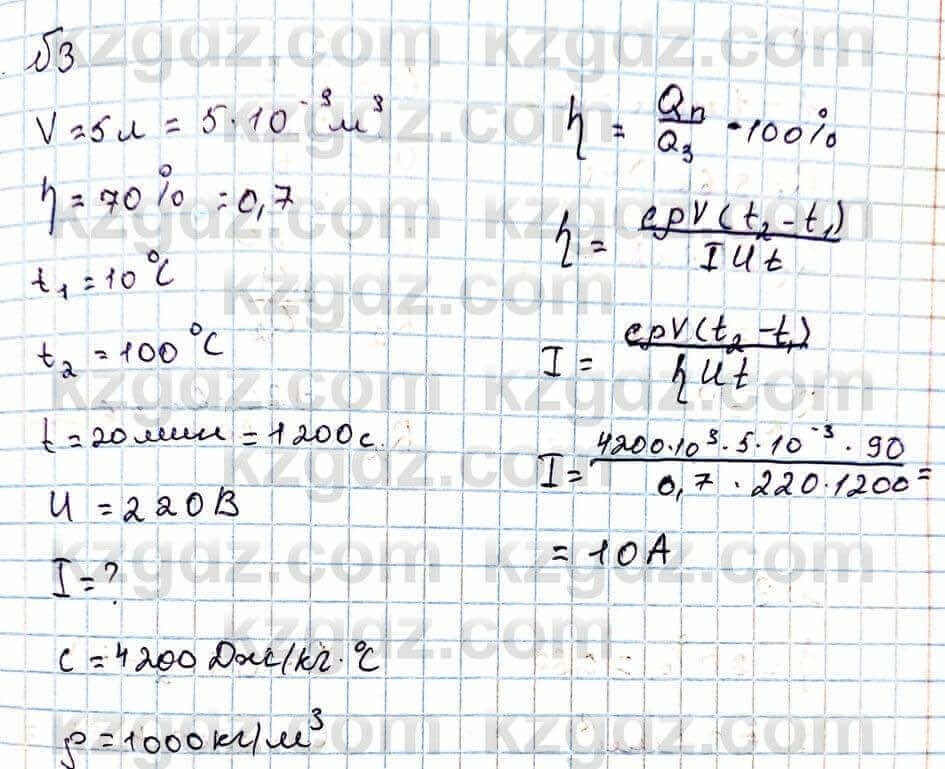 √3
V = 5 л = 5·10⁻³ м³
η = 70% = 0,7
t₁ = 10 °C
t₂ = 100 °C
t = 20 мин = 1200 с.
U = 220 В
I = ?
c = 4200 Дж/кг·°C
ρ = 1000 кг/м³
η = Qп/Qз · 100%
η = cρV(t₂ - t₁)/IUt
I = cρV(t₂ - t₁)/ηUt
I = 4200·10³·5·10⁻³·90/0,7·220·1200 =
= 10 A
kzgdz.com